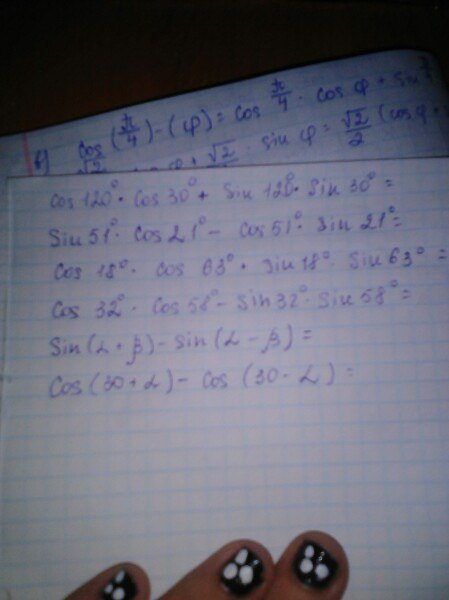 в) cos (π/4) - (φ) = cos π/4 · cos φ + sin
√2/2 cos φ + √2/2 · sin φ = √2/2 (cos φ +
Cos 120° · Cos 30° + Sin 120° · Sin 30° =
Sin 51° · Cos 21° - Cos 51° · Sin 21° =
Cos 18° · Cos 63° + Sin 18° · Sin 63° =
Cos 32° · Cos 58° - Sin 32° · Sin 58° =
Sin (α + β) - Sin (α - β) =
Cos (30 + α) - Cos (30 - α) =